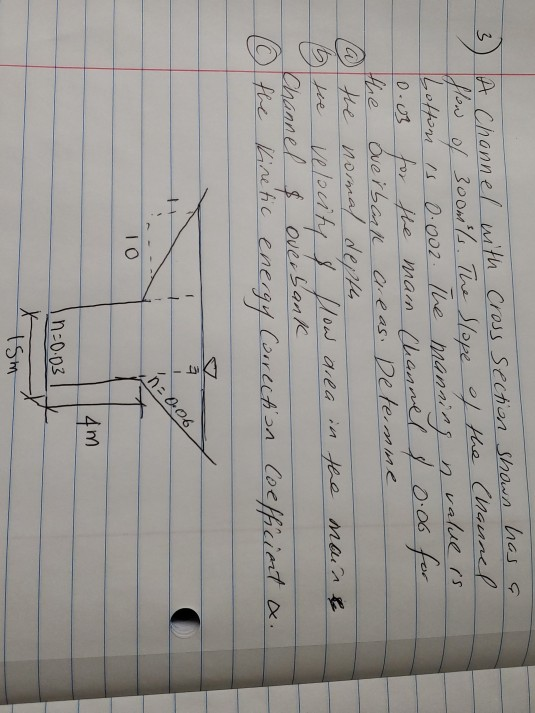 3) A channel with cross section shown has a
flow of 300m³/s. The slope of the channel
bottom is 0.002. The manning n value is
0.03 for the main channel & 0.06 for
the overbank areas. Determine
(a) the normal depth
(b) the velocity & flow area in the main
channel & overbank
(c) the kinetic energy correction coefficient α.
1
10
n=0.06
4m
n=0.03
15m